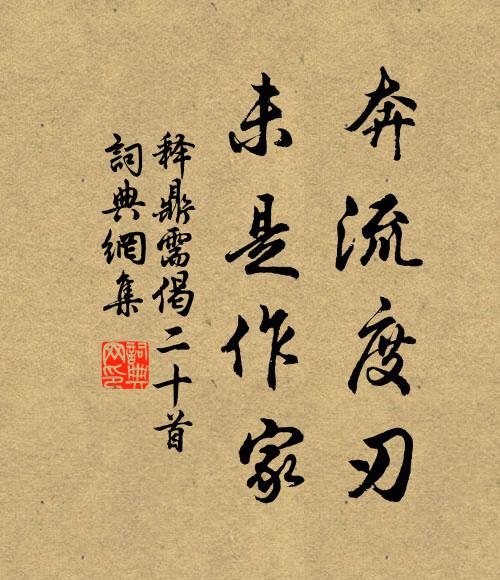 奔流度刃
未是作家
释鼎需偈二十首
詞典網集
詞典
网印